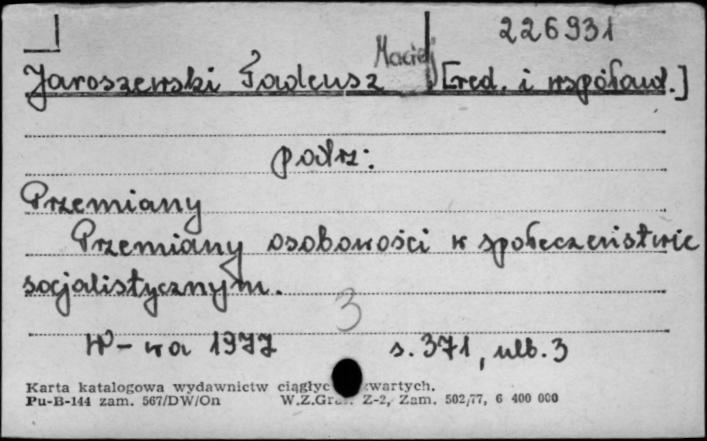 226931
Jaroszewski Tadeusz Maciej [red. i współaut.]
patrz:
Przemiany
Przemiany osobowości w społeczeństwie
socjalistycznym.
3
W-wa 1977 s. 371, ulb. 3
Karta katalogowa wydawnictw ciągłyc zwartych.
Pu-B-144 zam. 567/DW/On W.Z.Gra Z-2, Zam. 502/77, 6 400 000